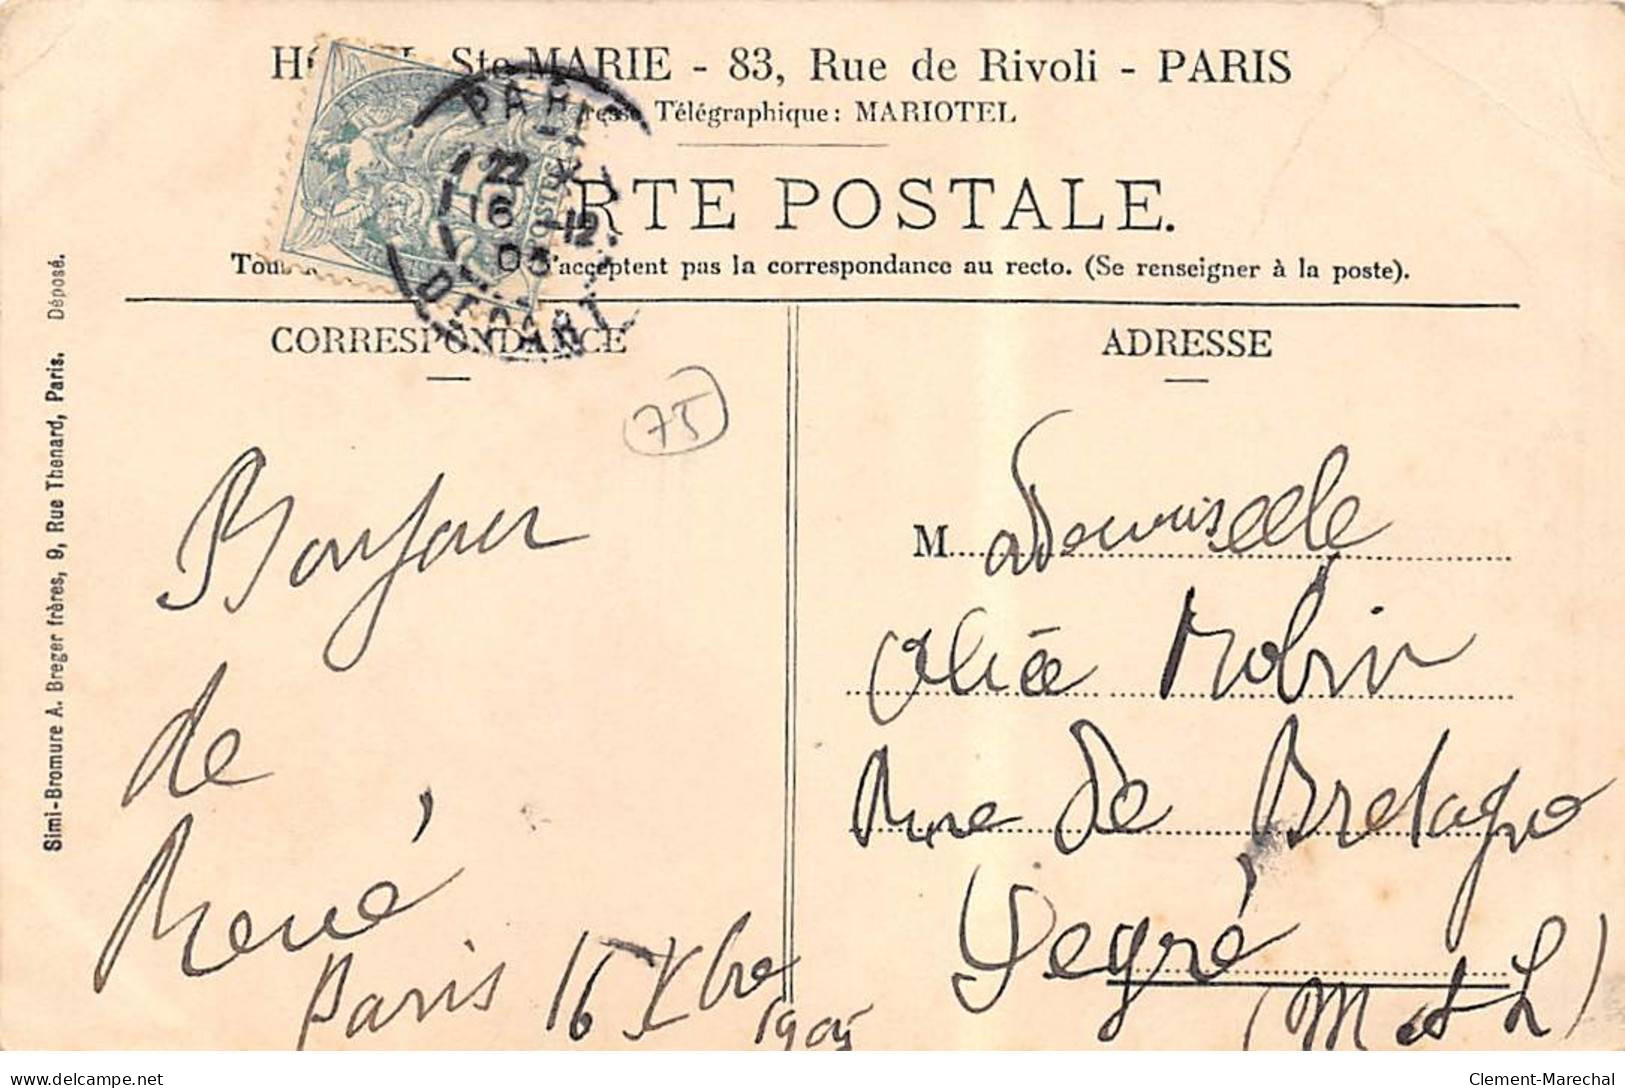 Ste MARIE - 83, Rue de Rivoli - PARIS
Télégraphique: MARIOTEL
RTE POSTALE.
s'acceptent pas la correspondance au recto. (Se renseigner à la poste).
PARI
22
16 -12
05
DEPART
POSTES
CORRESPONDANCE
75
Bonjour
de
René
Paris 16 Xbre
1905
ADRESSE
Mademoiselle
Alice Robin
Rue de Bretagne
Segré
(M et L)
Simi-Bromure A. Breger frères, 9, Rue Thenard, Paris. Déposé.
delcampe.net
Clement-Marechal